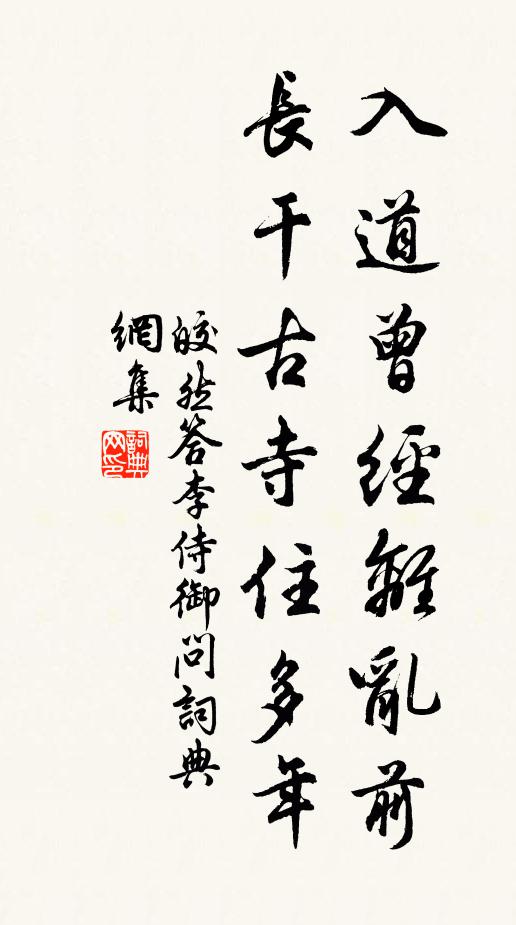 入道曾經離亂前
長干古寺住多年
皎然答李侍御問詞典
網集
詞典
网印